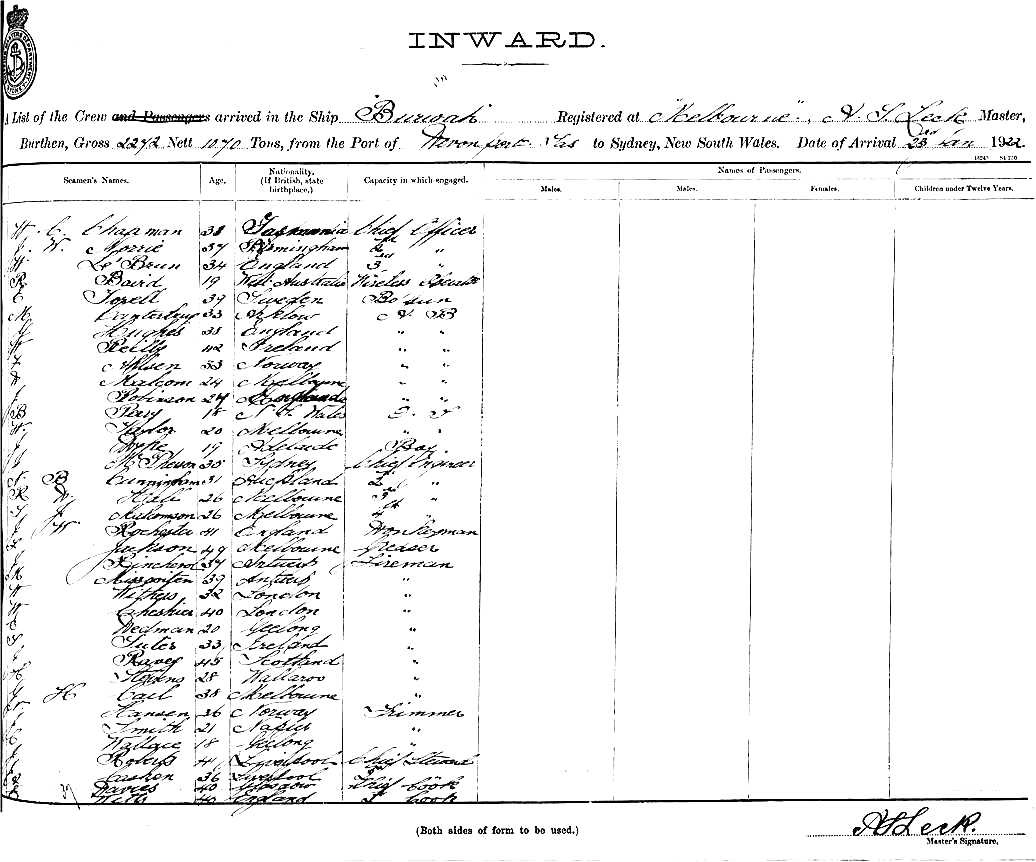 INWARD.
A List of the Crew and Passengers arrived in the Ship "Burwah" Registered at "Melbourne", A. S. Leck Master,
Burthen, Gross 2272 Nett 1070 Tons, from the Port of Devonport Tas to Sydney, New South Wales. Date of Arrival 23rd Jan 1922
Names of Passengers.
Seamen's Names. Age. Nationality. (If British, state birthplace.) Capacity in which engaged. Males. Males. Females. Children under Twelve Years.
H. C. Chapman 38 Tasmania Chief Officer
J. W. Norrie 37 Birmingham 2nd "
Le'Brun 34 England 3rd "
R Baird 19 West Australia Wireless
C 39 Sweden Bo'sun
M Canterbury 33 Arklow A B
Hughes 38 England " "
Reilly 42 Ireland " "
Nilsen 53 Norway " "
Malcom 24 Melbourne " "
J Robinson 27 " "
B Perry 18 N. S. Wales O. S
Taylor 20 Melbourne " "
19 Adelaide Boy
35 Sydney Chief Engineer
N B Cunningham 31 Auckland 2nd "
R W. Hall 26 Melbourne 3rd "
J. 26 Melbourne 4th "
J W Rochester 41 England
Jackson 49 Melbourne Greaser
37 Antwerp Fireman
39 Antwerp "
Withers 32 London "
Cheshier 40 London "
Wedman 20 Geelong "
33 Ireland "
45 Scotland "
Stevens 28 Wallaroo "
H Cail 38 Melbourne "
Hansen 36 Norway Trimmer
Smith 21 Napier "
Wallace 18 Geelong "
Roberts 41 Liverpool Chief Steward
Cashen 36 Liverpool 2nd "
Davies 40 Glasgow Chief Cook
40 England 2 Cook
39
(Both sides of form to be used.)
A S Leck.
Master's Signature.